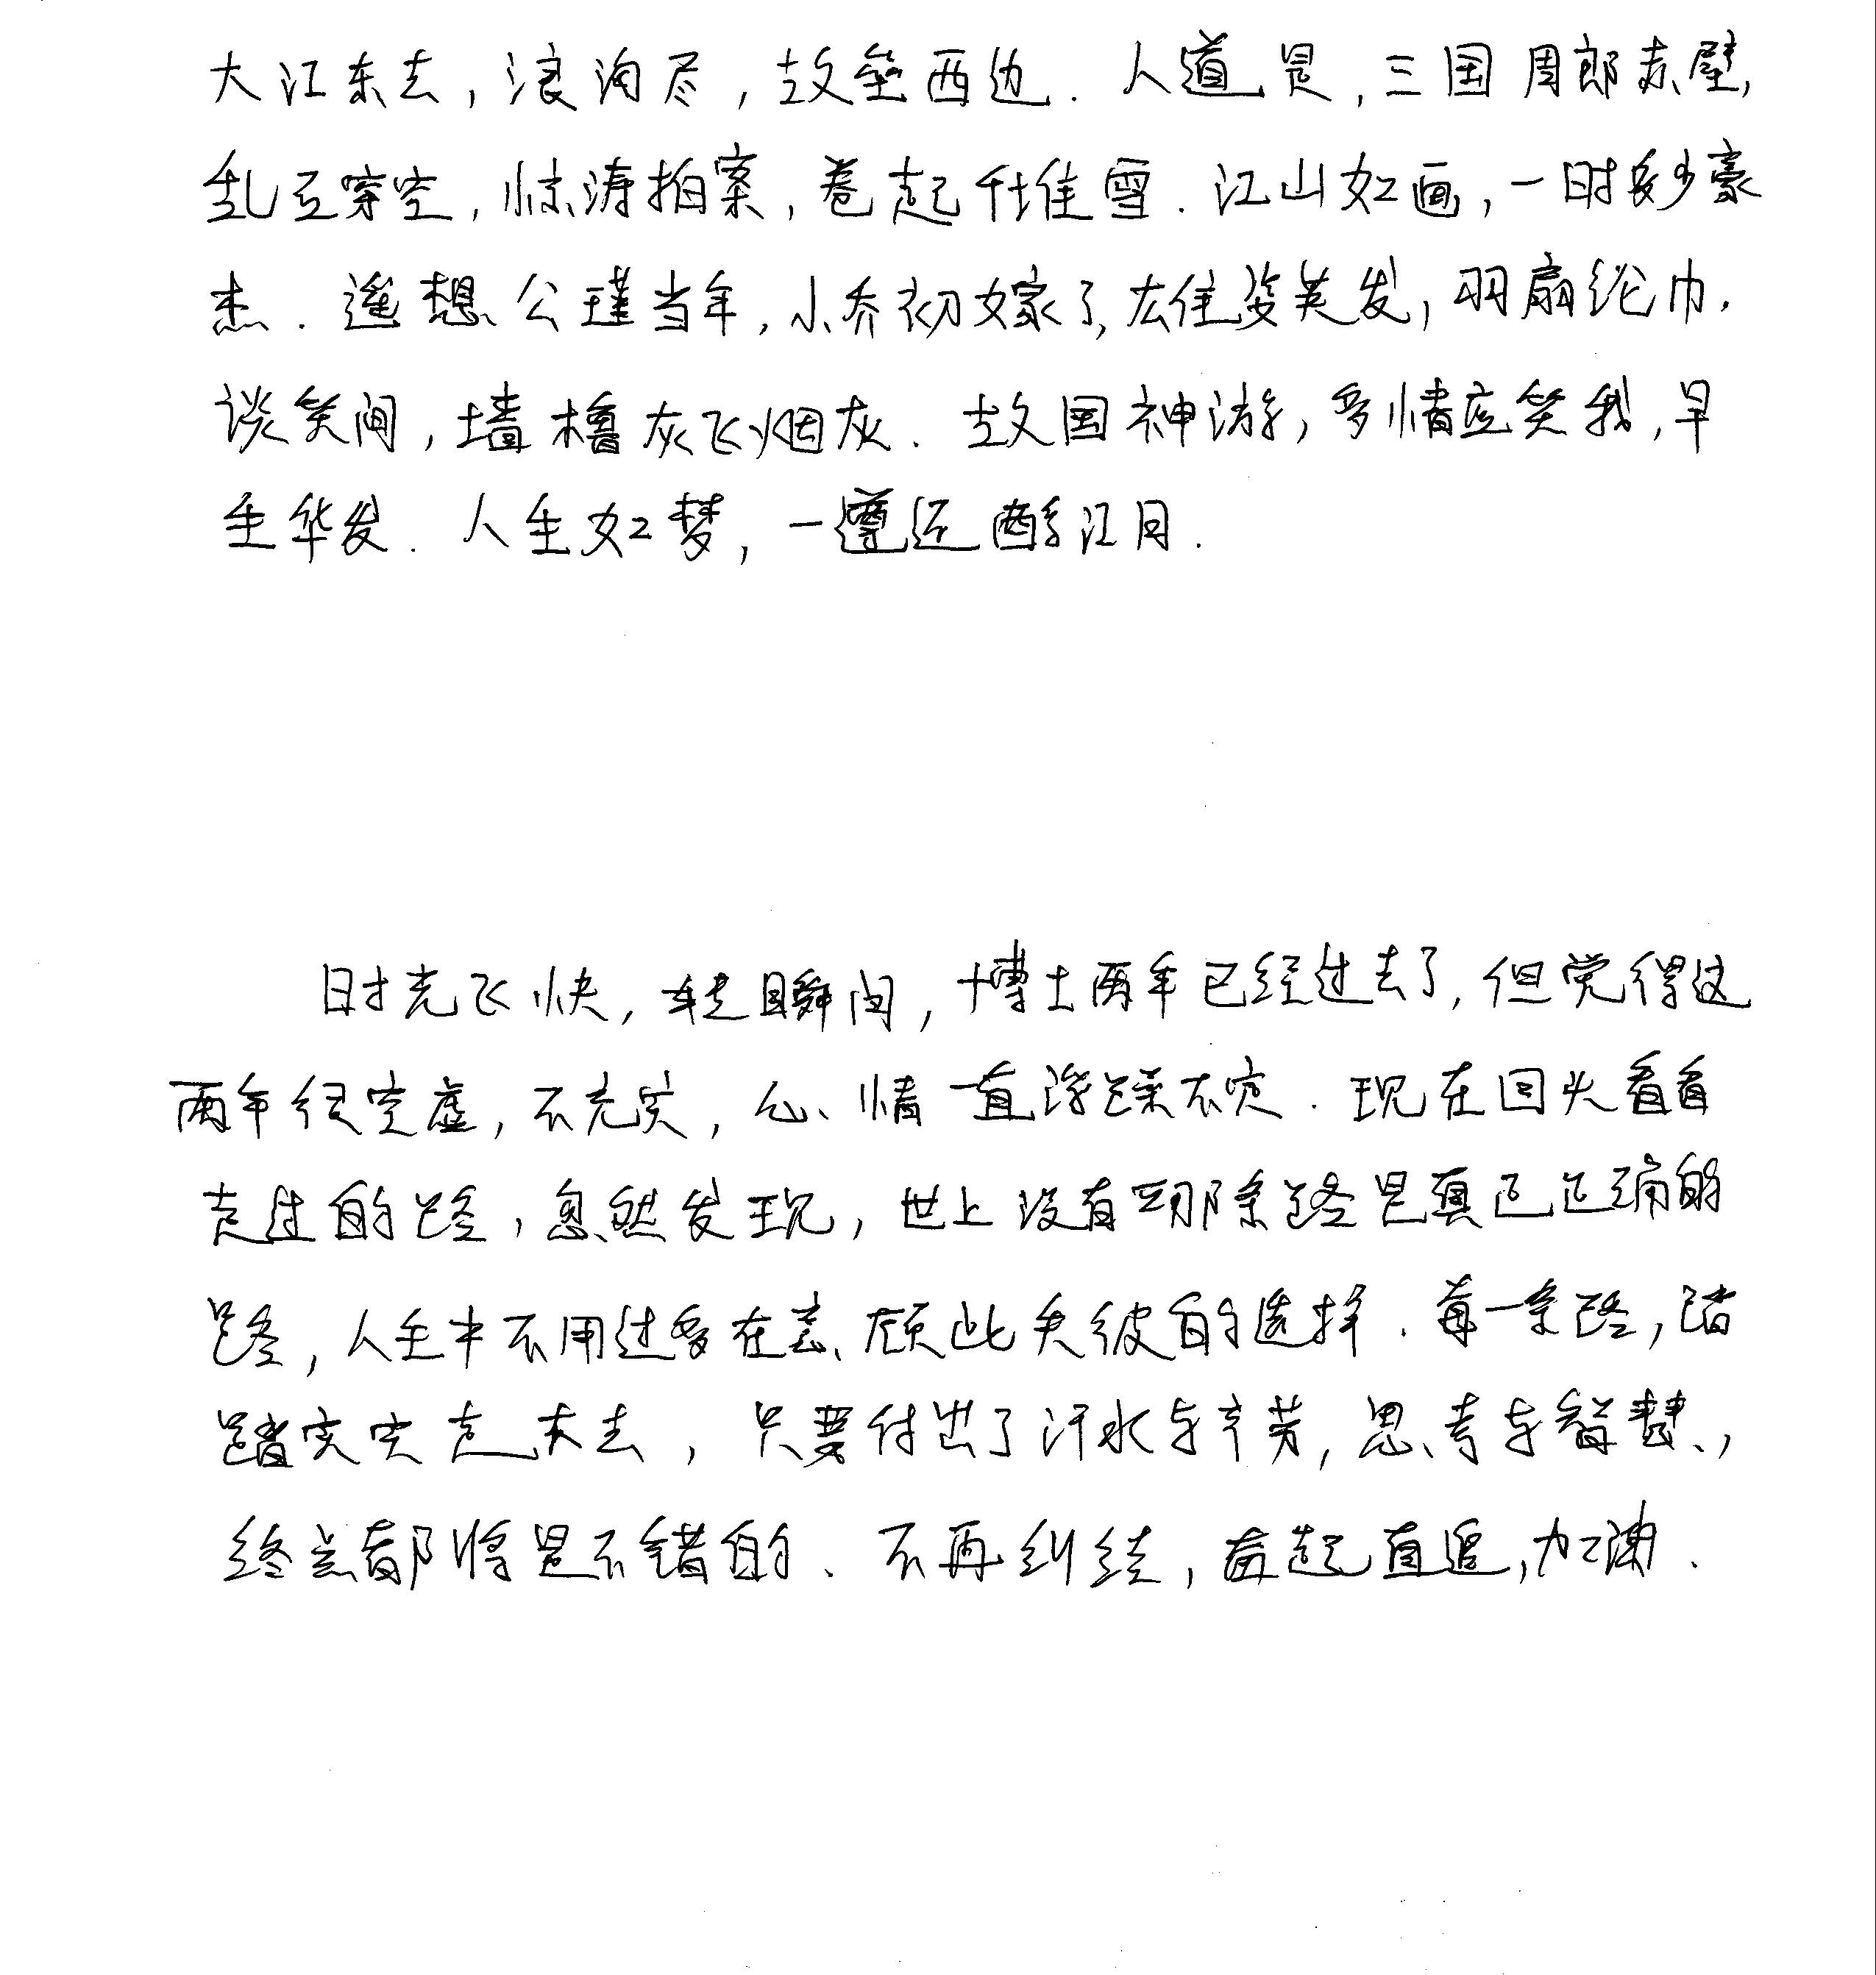 大江东去,浪淘尽,故垒西边.人道是,三国周郎赤壁,
乱石穿空,惊涛拍案,卷起千堆雪.江山如画,一时多少豪
杰.遥想公瑾当年,小乔初嫁了,雄姿英发,羽扇纶巾,
谈笑间,墙橹灰飞烟灰.故国神游,多情应笑我,早
生华发.人生如梦,一遵还酹江月.
时光飞快,转瞬间,博士两年已经过去了,但觉得这
两年很空虚,不充实,心情一直浮躁不定.现在回头看看
走过的路,忽然发现,世上没有哪条路是真正正确的
路,人生中不用过多在意、顾此失彼的选择.每一条路,踏
踏实实走下去,只要付出了汗水与辛劳,思考与智慧,
终点都将是不错的、不再纠结,奋起直追,加油.